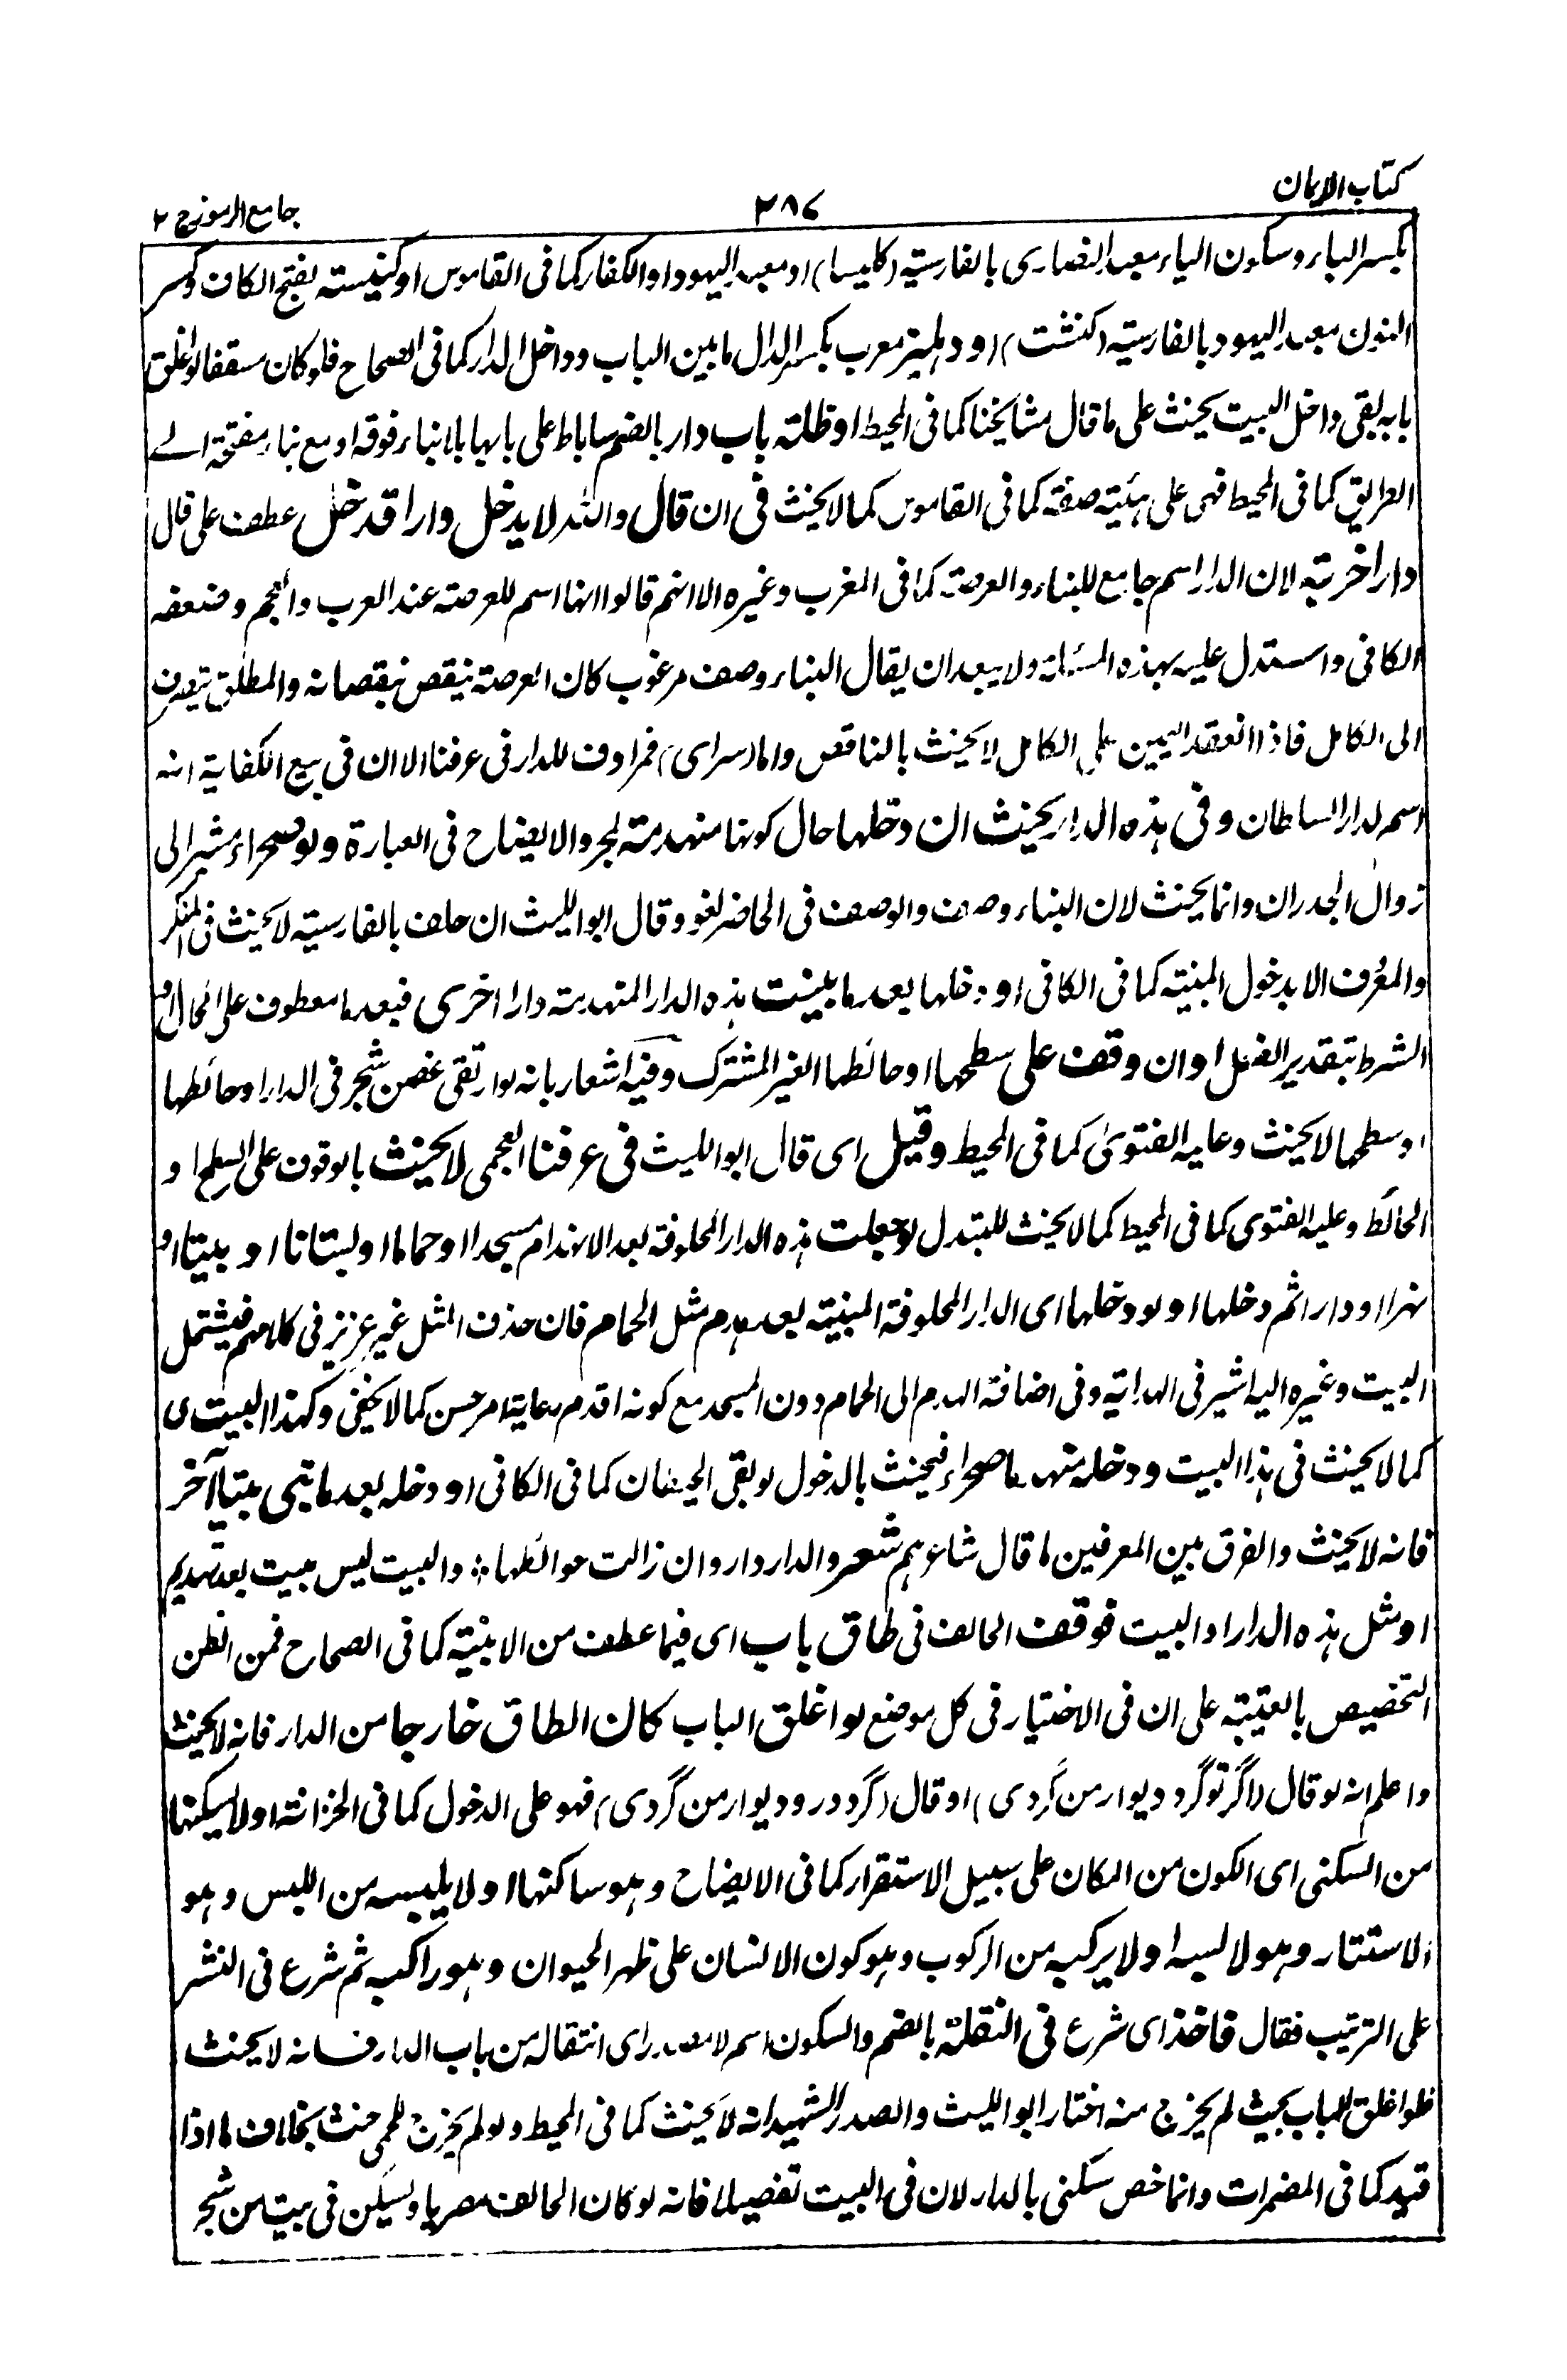 كتاب الايمان
٢٨٦
جامع الرموز ج ٢
بكسر الباء وسكون الياء معبد النصارى بالفارسية (كليسا) او معبد اليهود او الكفار كما فى القاموس او كنيسته بفتح الكاف وكسر
النون معبد اليهود بالفارسية (كنشت) او دهليز معرب بكسر الدال ما بين الباب وداخل الدار كما فى الصحاح فلو كان مسقفا لو اغلق
بابه بقى داخل البيت يحنث على ما قال مشايخنا كما فى المحيط او ظلته باب دار بالضم ساباط على بابها بلا بناء فوقه او مع بناء مفتحة الے
الطريق كما فى المحيط فهى على هيئة صفة كما فى القاموس كما لا يحنث فى ان قال والله لا يدخل دارا قد خل عطف على قال
دارا خربة لان الدار اسم جامع للبناء والعرصة كما فى المغرب وغيره الا انهم قالوا انها اسم للعرصة عند العرب والعجم وضعفه
الكافى واستدل عليه بهذه المسئلة ولا يبعد ان يقال البناء وصف مرغوب كان العرصة ينقص بنقصانه والمطلق يتصرف
الى الكامل فاذا انعقد اليمين على الكامل لا يحنث بالناقص واما (سراى) فمرادف للدار فى عرفنا الا ان فى بيع الكفاية انه
اسم لدار السلطان وفى هذه الدار يحنث ان دخلها حال كونها منهدمة لمجرد الايضاح فى العبارة ولو صحراء مشير الى
زوال الجدران وانما يحنث لان البناء وصف والوصف فى الحاضر لغو وقال ابو الليث ان حلف بالفارسية لا يحنث فى المنكر
والمعرف الا بدخول المبنية كما فى الكافى او دخلها بعد ما بنيت هذه الدار المنهدمة دارا اخرى فبعد ما معطوف على الحال او
الشرط بتقدير الفعل او ان وقف على سطحها او حائطها الغير المشترك وفيه اشعار بانه لو ارتقى غصن شجر فى الدار او حائطها
او سطحها لا يحنث وعليه الفتوىٰ كما فى المحيط وقيل اى قال ابو الليث فى عرفنا العجمى لا يحنث بالوقوف على السطح او
الحائط وعليه الفتوى كما فى المحيط كما لا يحنث للتبدل لو جعلت هذه الدار المحلوفة بعد الانهدام مسجدا او حماما او بستانا او بيتا او
نهرا او دارا ثم دخلها او لو دخلها اى الدار المحلوفة المبنية بعد هدم مثل الحمام فان حذف المثل غير عزيز فى كلامهم فيشتمل
البيت وغيره اليه اشير فى الهداية وفى اضافة الهدم الى الحمام دون المسجد مع كونه اقدم رعاية امر حسن كما لا يخفى وكهذا البيت ى
كما لا يحنث فى هذا البيت ودخله منهدما صحراء فيحنث بالدخول لو بقى الحيطان كما فى الكافى او دخله بعد ما بنى بيتا آخر
فانه لا يحنث والفرق بين المعرفين ما قال شاعرهم شعر والدار دار وان زالت حوائطها ؛ والبيت ليس ببيت بعد تهديم
او مثل هذه الدار او البيت فوقف الحالف فى طاق باب اى فيما عطف من الابنية كما فى الصحاح فمن الظن
التخصيص بالعتبة على ان فى الاختيار فى كل موضع لو اغلق الباب كان الطاق خارجا من الدار فانه لا يحنث
واعلم انه لو قال (اگر تو گرد ديوار من گردى) او قال (گرد در وديوار من گردى) فهو على الدخول كما فى الخزانة او لا يسكنها
من السكنى اى الكون من المكان على سبيل الاستقرار كما فى الايضاح وهو ساكنها او لا يلبسه من اللبس وهو
الاستتار وهو لابسه او لا يركبه من الركوب وهو كون الانسان على ظهر الحيوان وهو راكبه ثم شرع فى النشر
على الترتيب فقال فاخذ اى شرع فى النقلة بالضم والسكون اسم لامصدر اى انتقاله من باب الدار فانه لا يحنث
فلو اغلق الباب بحيث لم يخرج منه اختار ابو الليث والصدر الشهيد انه لا يحنث كما فى المحيط ولو لم يخرج للحمى حنث بخلاف ما اذا
قيد كما فى المضمرات وانما خص سكنى بالدار لان فى البيت تفصيلا فانه لو كان الحالف مصريا ويسكن فى بيت من شجر